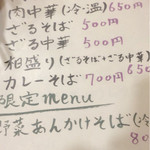 肉中華(冷・温)650
ざるそば 500円
ざる中華 500円
相盛り(ざるそば+ざる中華)
カレーそば 700円 650
限定menu
野菜あんかけそば(冷
80